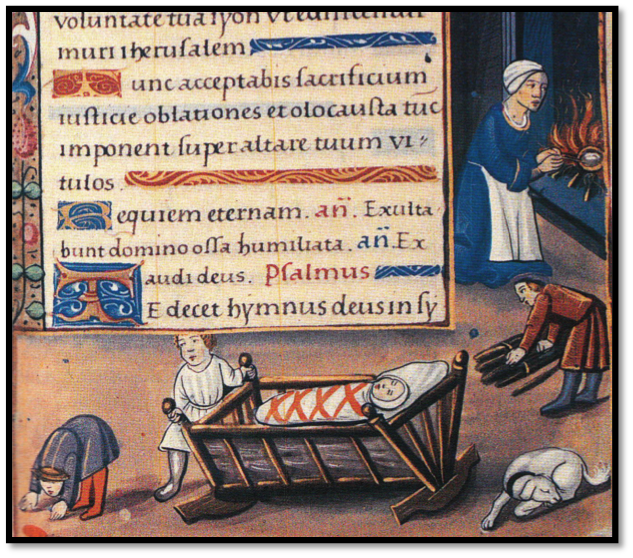 voluntate tua ſyon vt edificentur
muri iheruſalem
Tunc acceptabis ſacrificium
iuſticie oblationes et olocauſta tūc
imponent ſuper altare tuum vi⸗
tulos.
Requiem eternam. an̄. Exulta
bunt domino oſſa humiliata. an̄. Ex
audi deus. Pſalmus
TE decet hymnus deus in ſy